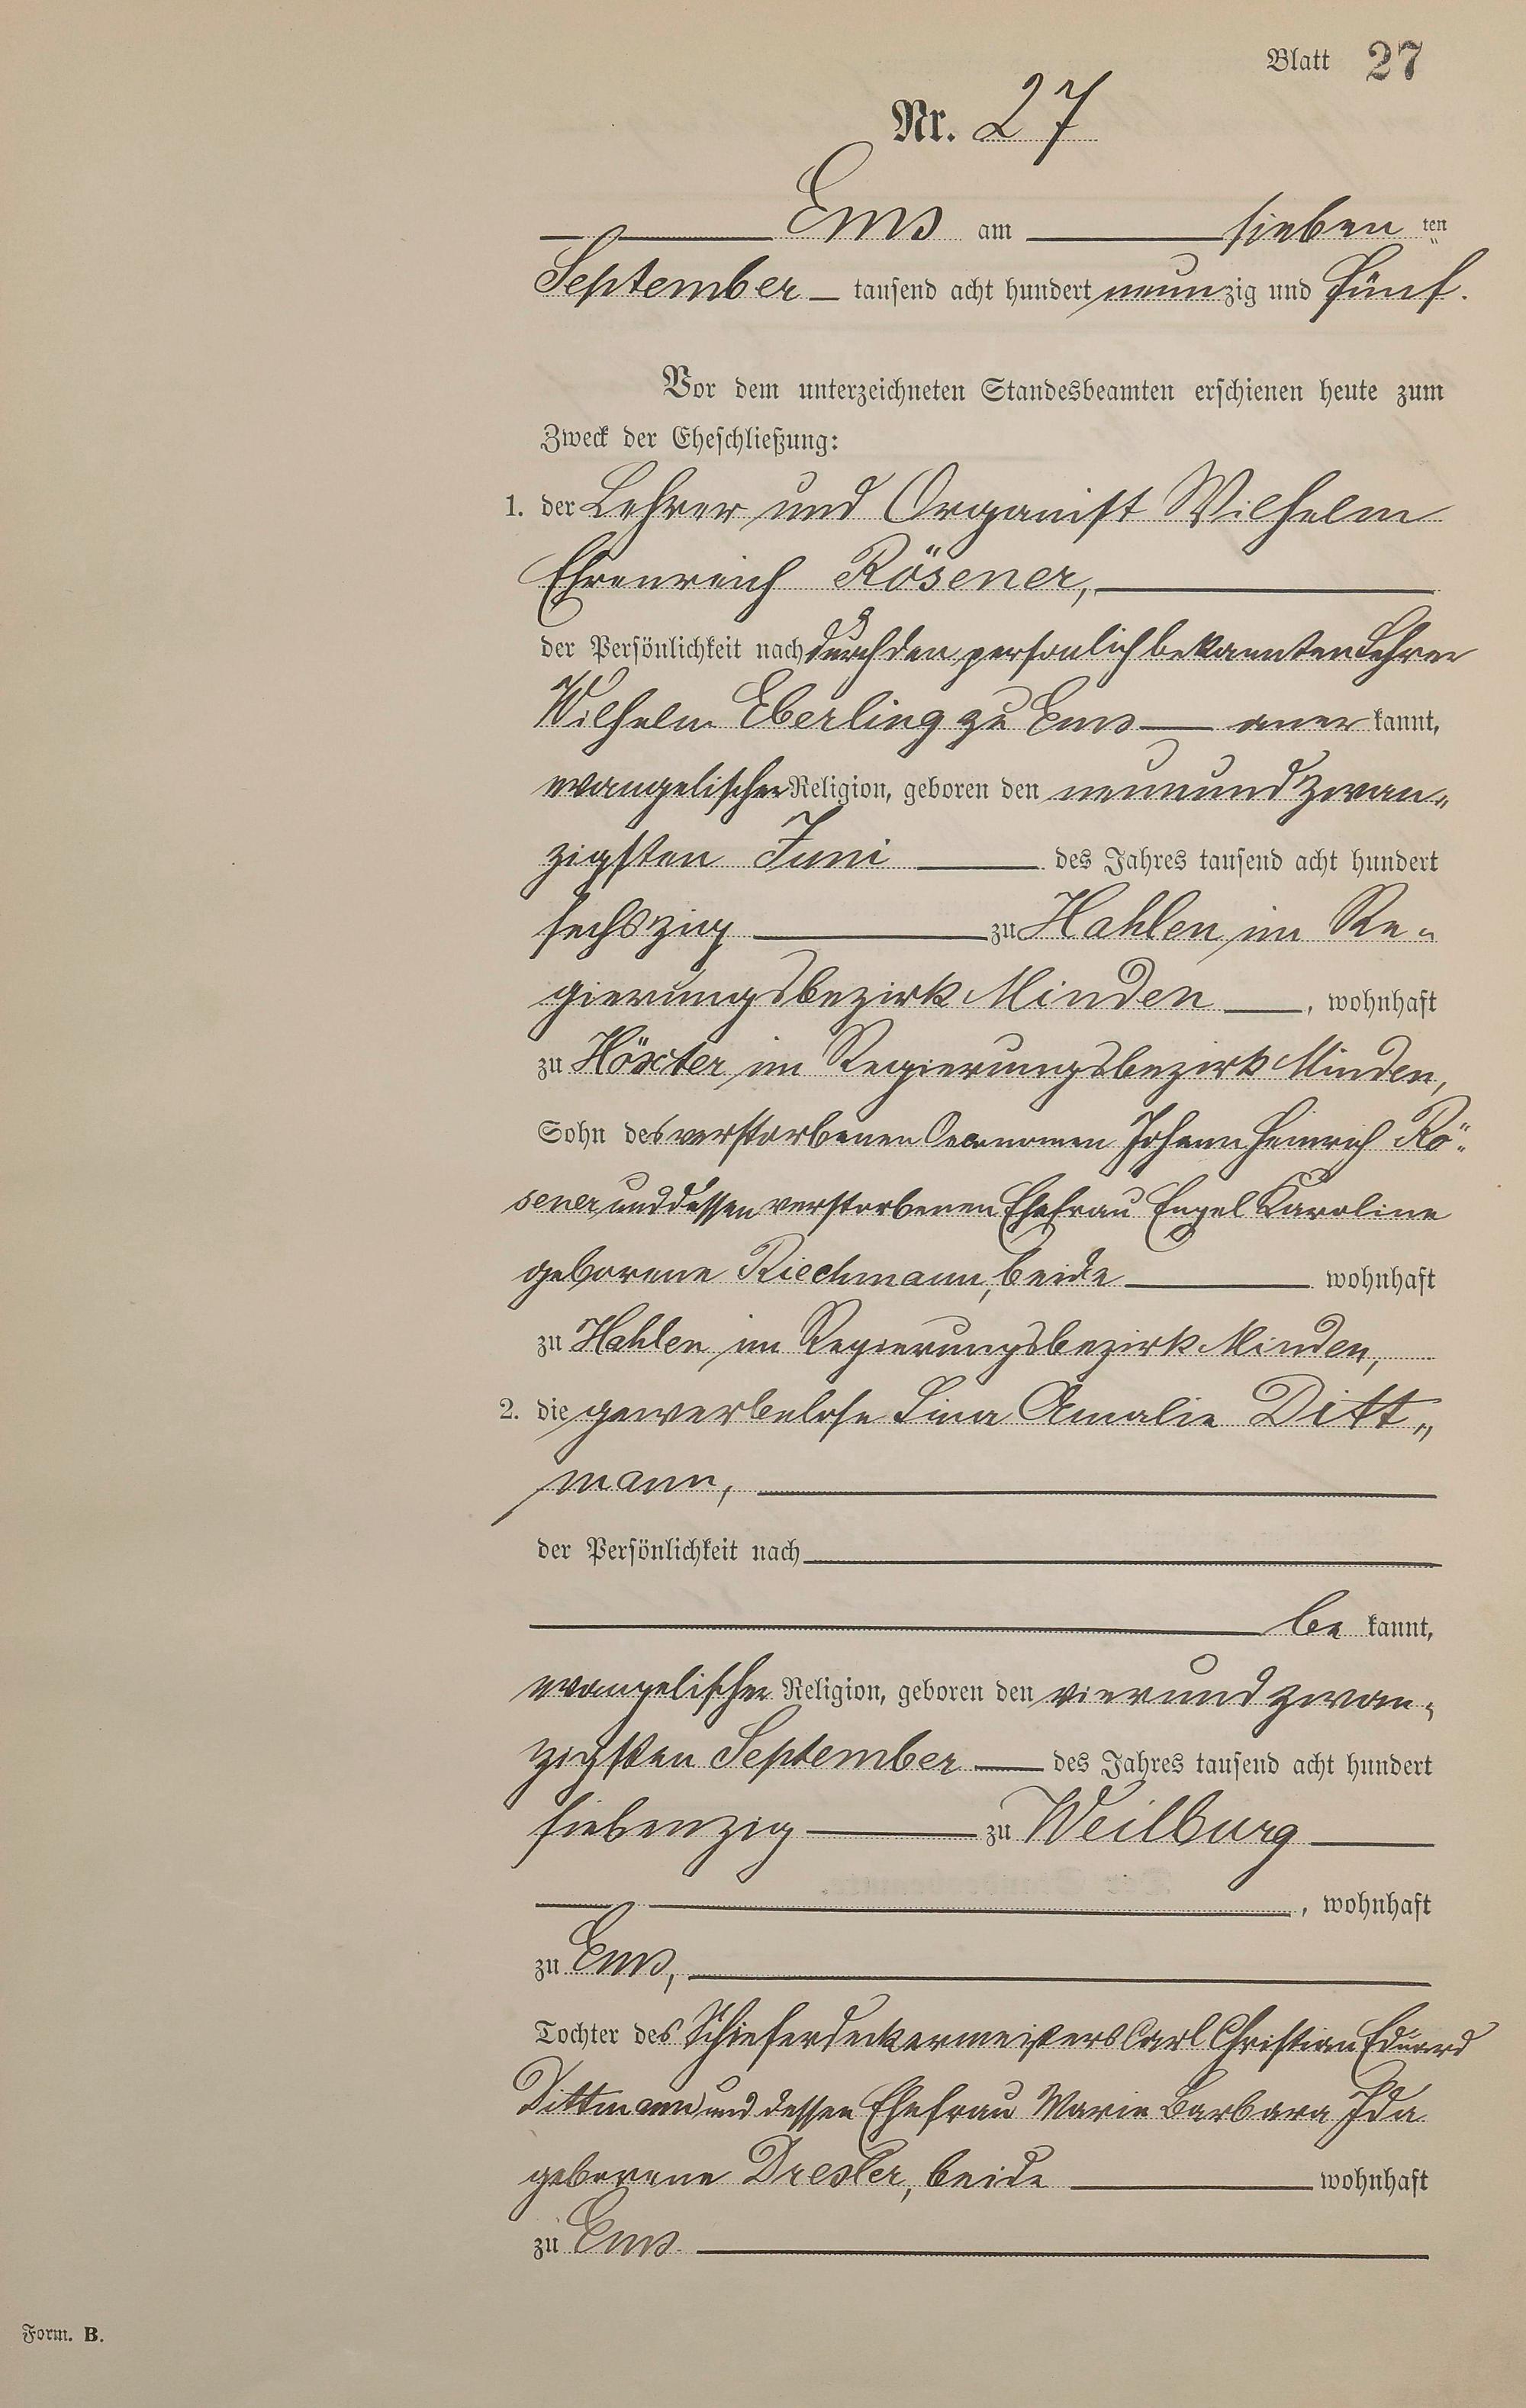 Blatt 27
Nr. 27
Ems am sieben ten
September tausend acht hundert neunzig und fünf.
Vor dem unterzeichneten Standesbeamten erschienen heute zum
Zweck der Eheschließung:
1. der Lehrer und Organist Wilhelm
Ehrenreich Rösener,
der Persönlichkeit nach durch den persönlich bekannten Lehrer
Wilhelm Eberling zu Ems anerkannt,
evangelischer Religion, geboren den neunundzwan-
zigsten Juni des Jahres tausend acht hundert
sechszig zu Hahlen im Re-
gierungsbezirk Minden, wohnhaft
zu Höxter im Regierungsbezirk Minden,
Sohn des verstorbenen Oeconomen Johann Heinrich Rö-
sener und dessen verstorbenen Ehefrau Engel Karoline
geborene Riechmann, beide wohnhaft
zu Hahlen im Regierungsbezirk Minden,
2. die gewerbelose Lina Amalie Ditt-
mann,
der Persönlichkeit nach
be kannt,
evangelischer Religion, geboren den vierundzwan-
zigsten September des Jahres tausend acht hundert
siebenzig zu Weilburg
, wohnhaft
zu Ems,
Tochter des Schieferdeckermeisters Carl Christian Eduard
Dittmann und dessen Ehefrau Marie Barbara Ida
geborene Dresler, beide wohnhaft
zu Ems.
Form. B.